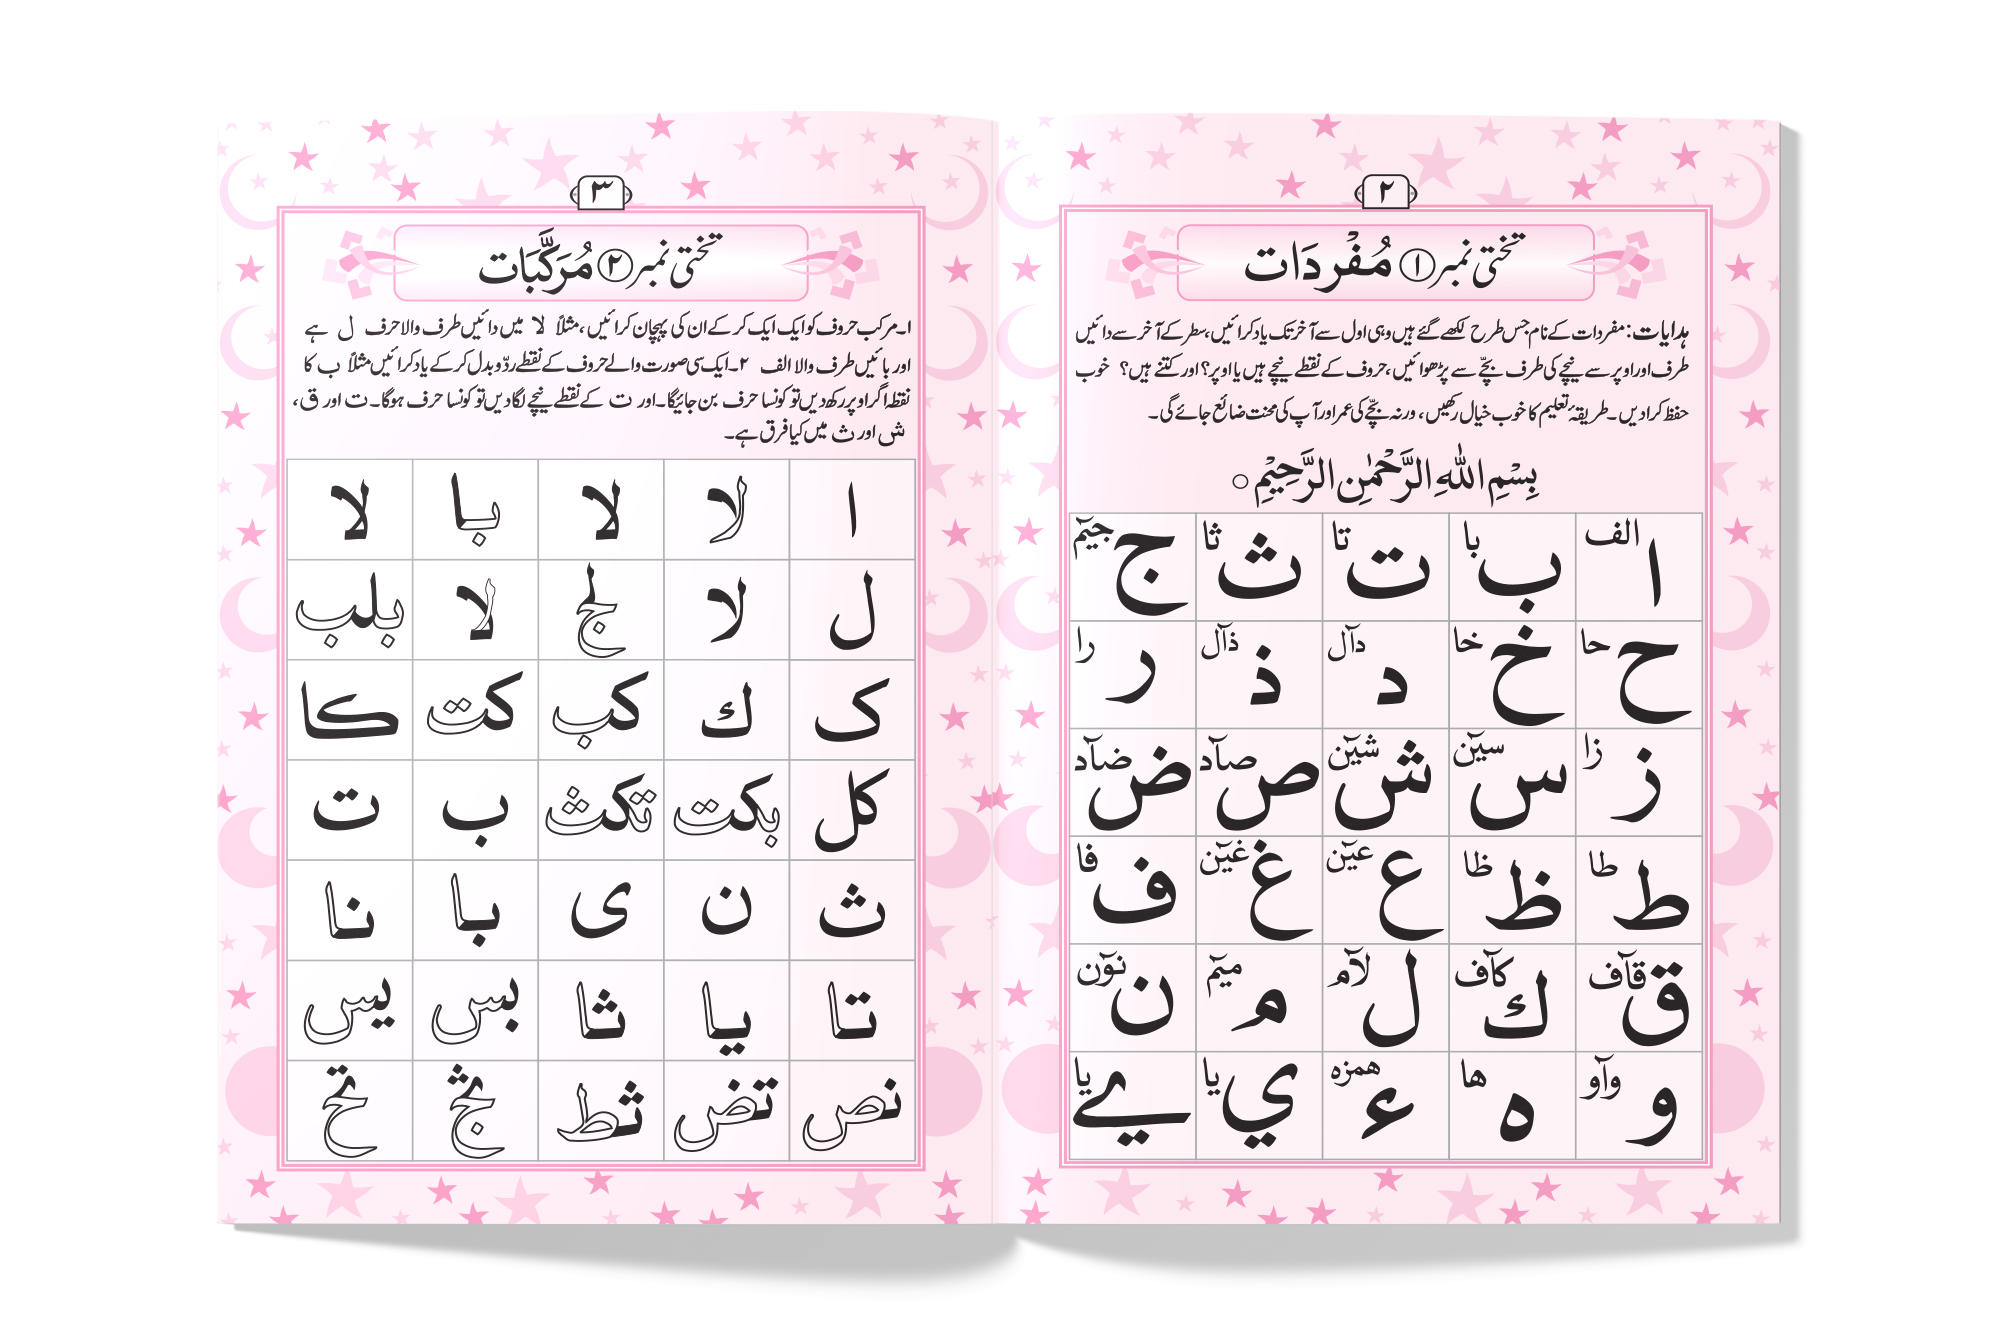 ۲
تختی نمبر ۱ مُفْرَدَات
ہدایات: مفردات کے نام جس طرح لکھے گئے ہیں وہی اول سے آخر تک یاد کرائیں، سطر کے آخر سے دائیں
طرف اور اوپر سے نیچے کی طرف بچّے سے پڑھوائیں، حروف کے نقطے نیچے ہیں یا اوپر؟ اور کتنے ہیں؟ خوب
حفظ کرادیں۔ طریقۂ تعلیم کا خوب خیال رکھیں، ورنہ بچّے کی عمر اور آپ کی محنت ضائع جائے گی۔
بِسْمِ اللّٰهِ الرَّحْمٰنِ الرَّحِيْمِ ○
ا الف ب با ت تا ث ثا ج جیٓم
ح حا خ خا د دآل ذ ذآل ر را
ز زا س سیٓن ش شیٓن ص صآد ض ضآد
ط طا ظ ظا ع عیٓن غ غیٓن ف فا
ق قآف ك كآف ل لآم م میٓم ن نوٓن
و وآو ه ها ء همزه ي یا ے یا
۳
تختی نمبر ۲ مُرَكَّبَات
۱۔ مرکب حروف کو ایک ایک کر کے ان کی پہچان کرائیں، مثلاً لا میں دائیں طرف والا حرف ل ہے
اور بائیں طرف والا الف ۲۔ ایک سی صورت والے حروف کے نقطے ردّ و بدل کر کے یاد کرائیں مثلاً ب کا
نقطہ اگر اوپر رکھ دیں تو کونسا حرف بن جائیگا۔ اور ت کے نقطے نیچے لگا دیں تو کونسا حرف ہوگا۔ ت اور ق،
ش اور ث میں کیا فرق ہے۔
ا لا لا با لا
ل لا لج لا بلب
ک ك کب کت کا
کل بکت تکث ب ت
ث ن ی با نا
تا یا ثا بس یس
نص تض ثط بج تح